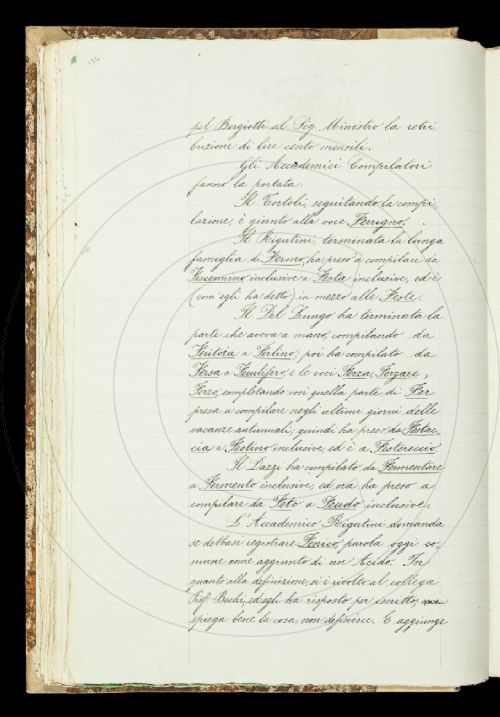 pel Bergiotti al Sig. Ministro la retri
buzione di lire cento mensili.
Gli Accademici Compilatori
fanno la portata.
Il Tortoli, seguitando la compi-
lazione, è giunto alla voce Ferrigno.
Il Rigutini, terminata la lunga
famiglia di Fermo, ha preso a compilare da
Fescennino inclusive a Festa inclusive, ed è
(com'egli ha detto) in mezzo alle Feste.
Il Del Lungo ha terminata la
parte che aveva a mano, compilando da
Feritoia a Ferlino; poi ha compilato da
Fersa a Fendifero, e le voci Forza, Forzare,
Forzo, completando così quella parte di Fer
presa a compilare negli ultimi giorni delle
vacanze autunnali; quindi ha preso da Festac-
cia a Festino inclusive, ed è a Festereccio.
Il Dazzi ha compilato da Fermentare
a Fermento inclusive, ed ora ha preso a
compilare da Feto a Feudo inclusive.
L'Accademico Rigutini domanda
se debbasi registrare Fenico, parola oggi co-
mune come aggiunto di un Acido. In
quanto alla definizione, si è rivolto al collega
Prof. Bechi, ed egli ha risposto per iscritto;
spiega bene la cosa, non definisce. E aggiunge